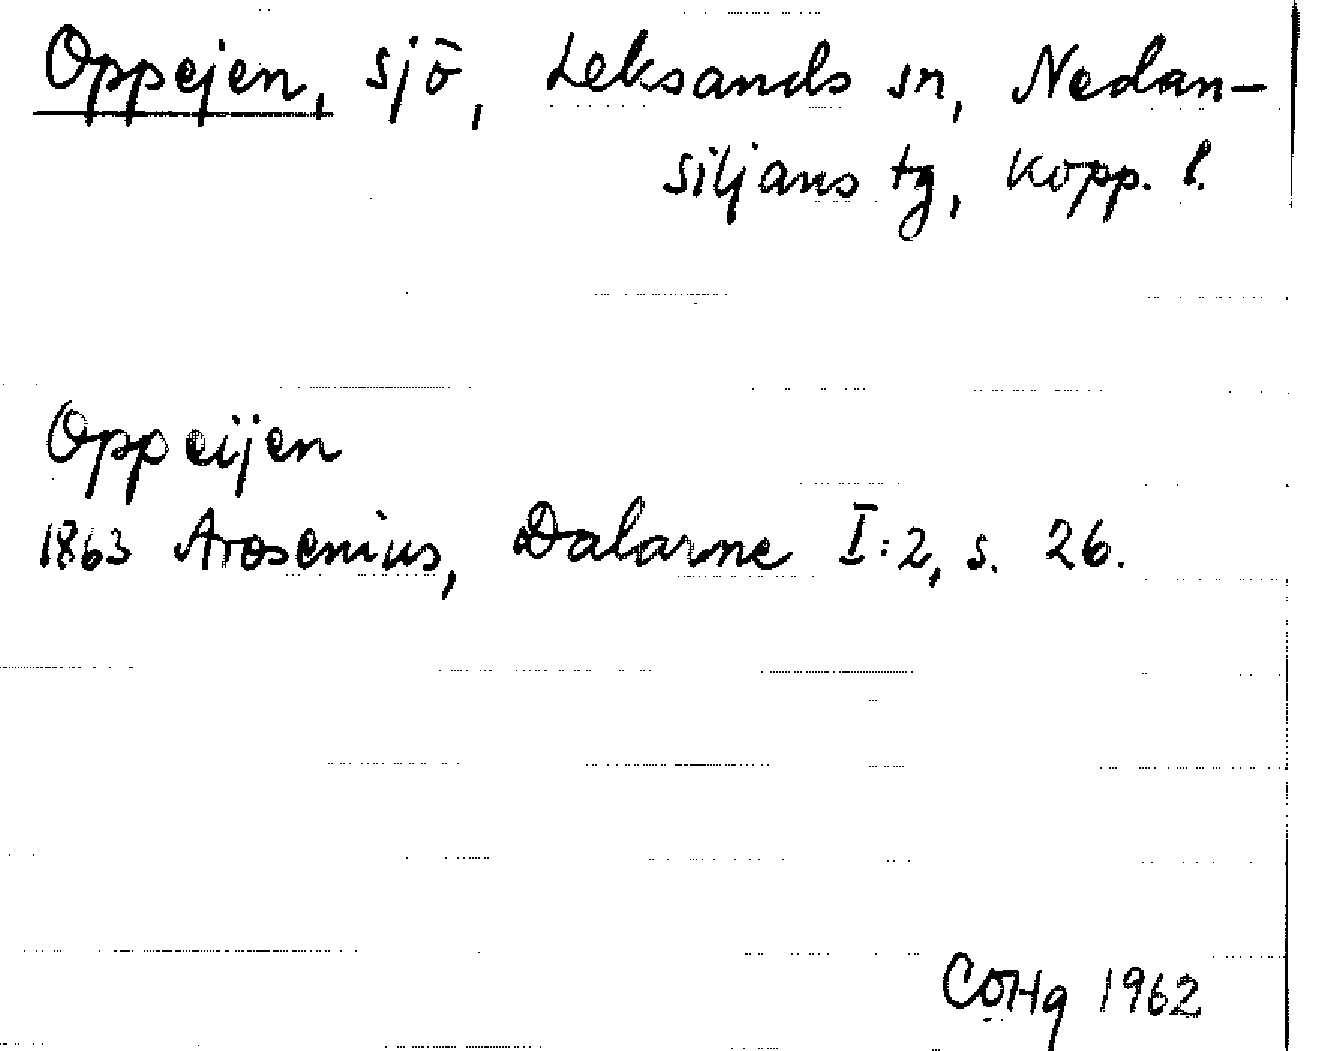 Oppejen, sjö, Leksands sn, Nedan-
siljans tg, Kopp. l.
Oppeijen
1863 Arosenius, Dalarne I:2, s. 26.
COHg 1962